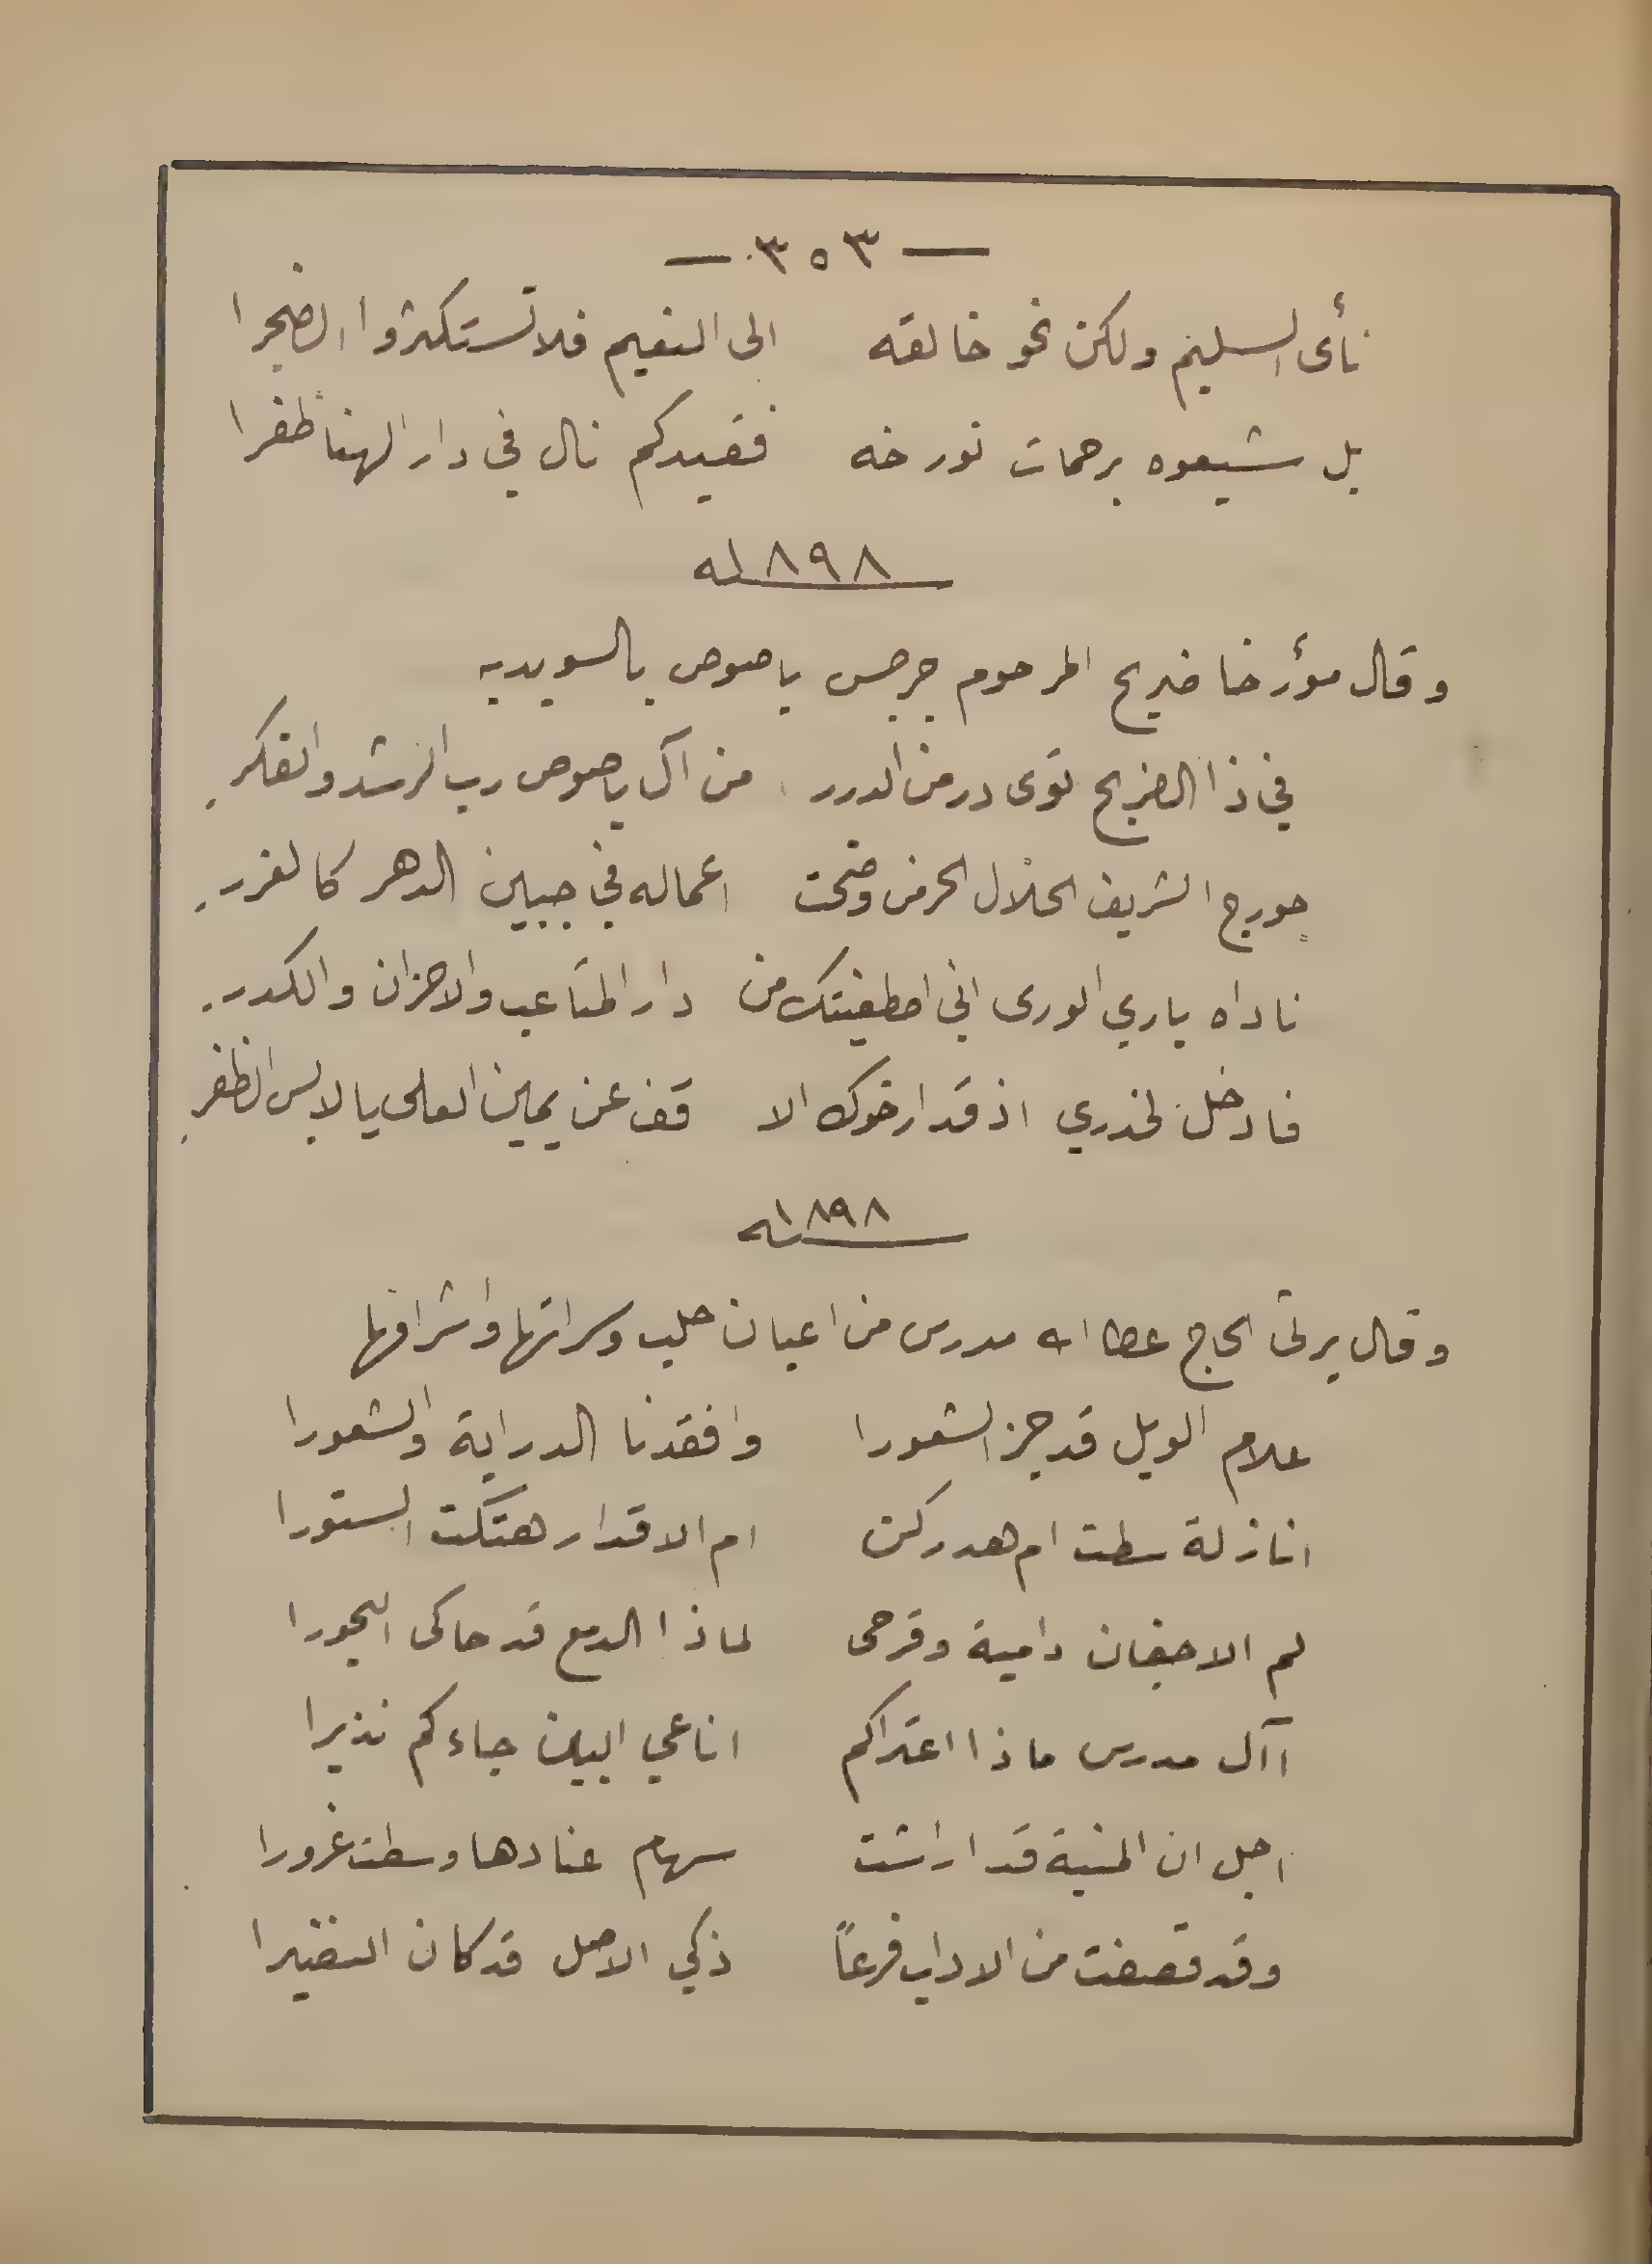 — ٣٥٣ —
نأى السليم ولكن نحو خالقه الى النعيم فلا تستكثروا الضجرا
بل شيعوه برحمات نورخه فقيدكم نال في دار الهنا ظفرا
١٨٩٨سنه
وقال مؤرخا ضريح المرحوم جرجس ياصوص بالسويديه
في ذا الضريح ثوى در من الدرر من آل ياصوص رب الرشد والفكر
جورج الشريف الخلال الحر من وضحت اعماله في جبين الدهر كالغرر
ناداه باري الورى اني اصطفيتك من دار المتاعب والاحزان والكدر
فادخل لخدري اذ قد ارخوك الا قف عن يمين العلى يا لابس الظفر
١٨٩٨سنه
وقال يرثى الحاج عطا الله مدرس من اعيان حلب وسراتها واشرافها
علام الويل قد جز الشعورا وافقدنا الدراية والشعورا
انازلة سطت ام هد ركن ام الاقدار هتكت الستورا
لم الاجفان دامية وقرحى لماذا الدمع قد حاكى البحورا
اآل مدرس ماذا اعتراكم اناعي البين جاءكم نذيرا
اجل ان المنية قد اراشت سهام عنادها وسطت غرورا
وقد قصفت من الاداب فرعاً ذكي الاصل قد كان النضيرا